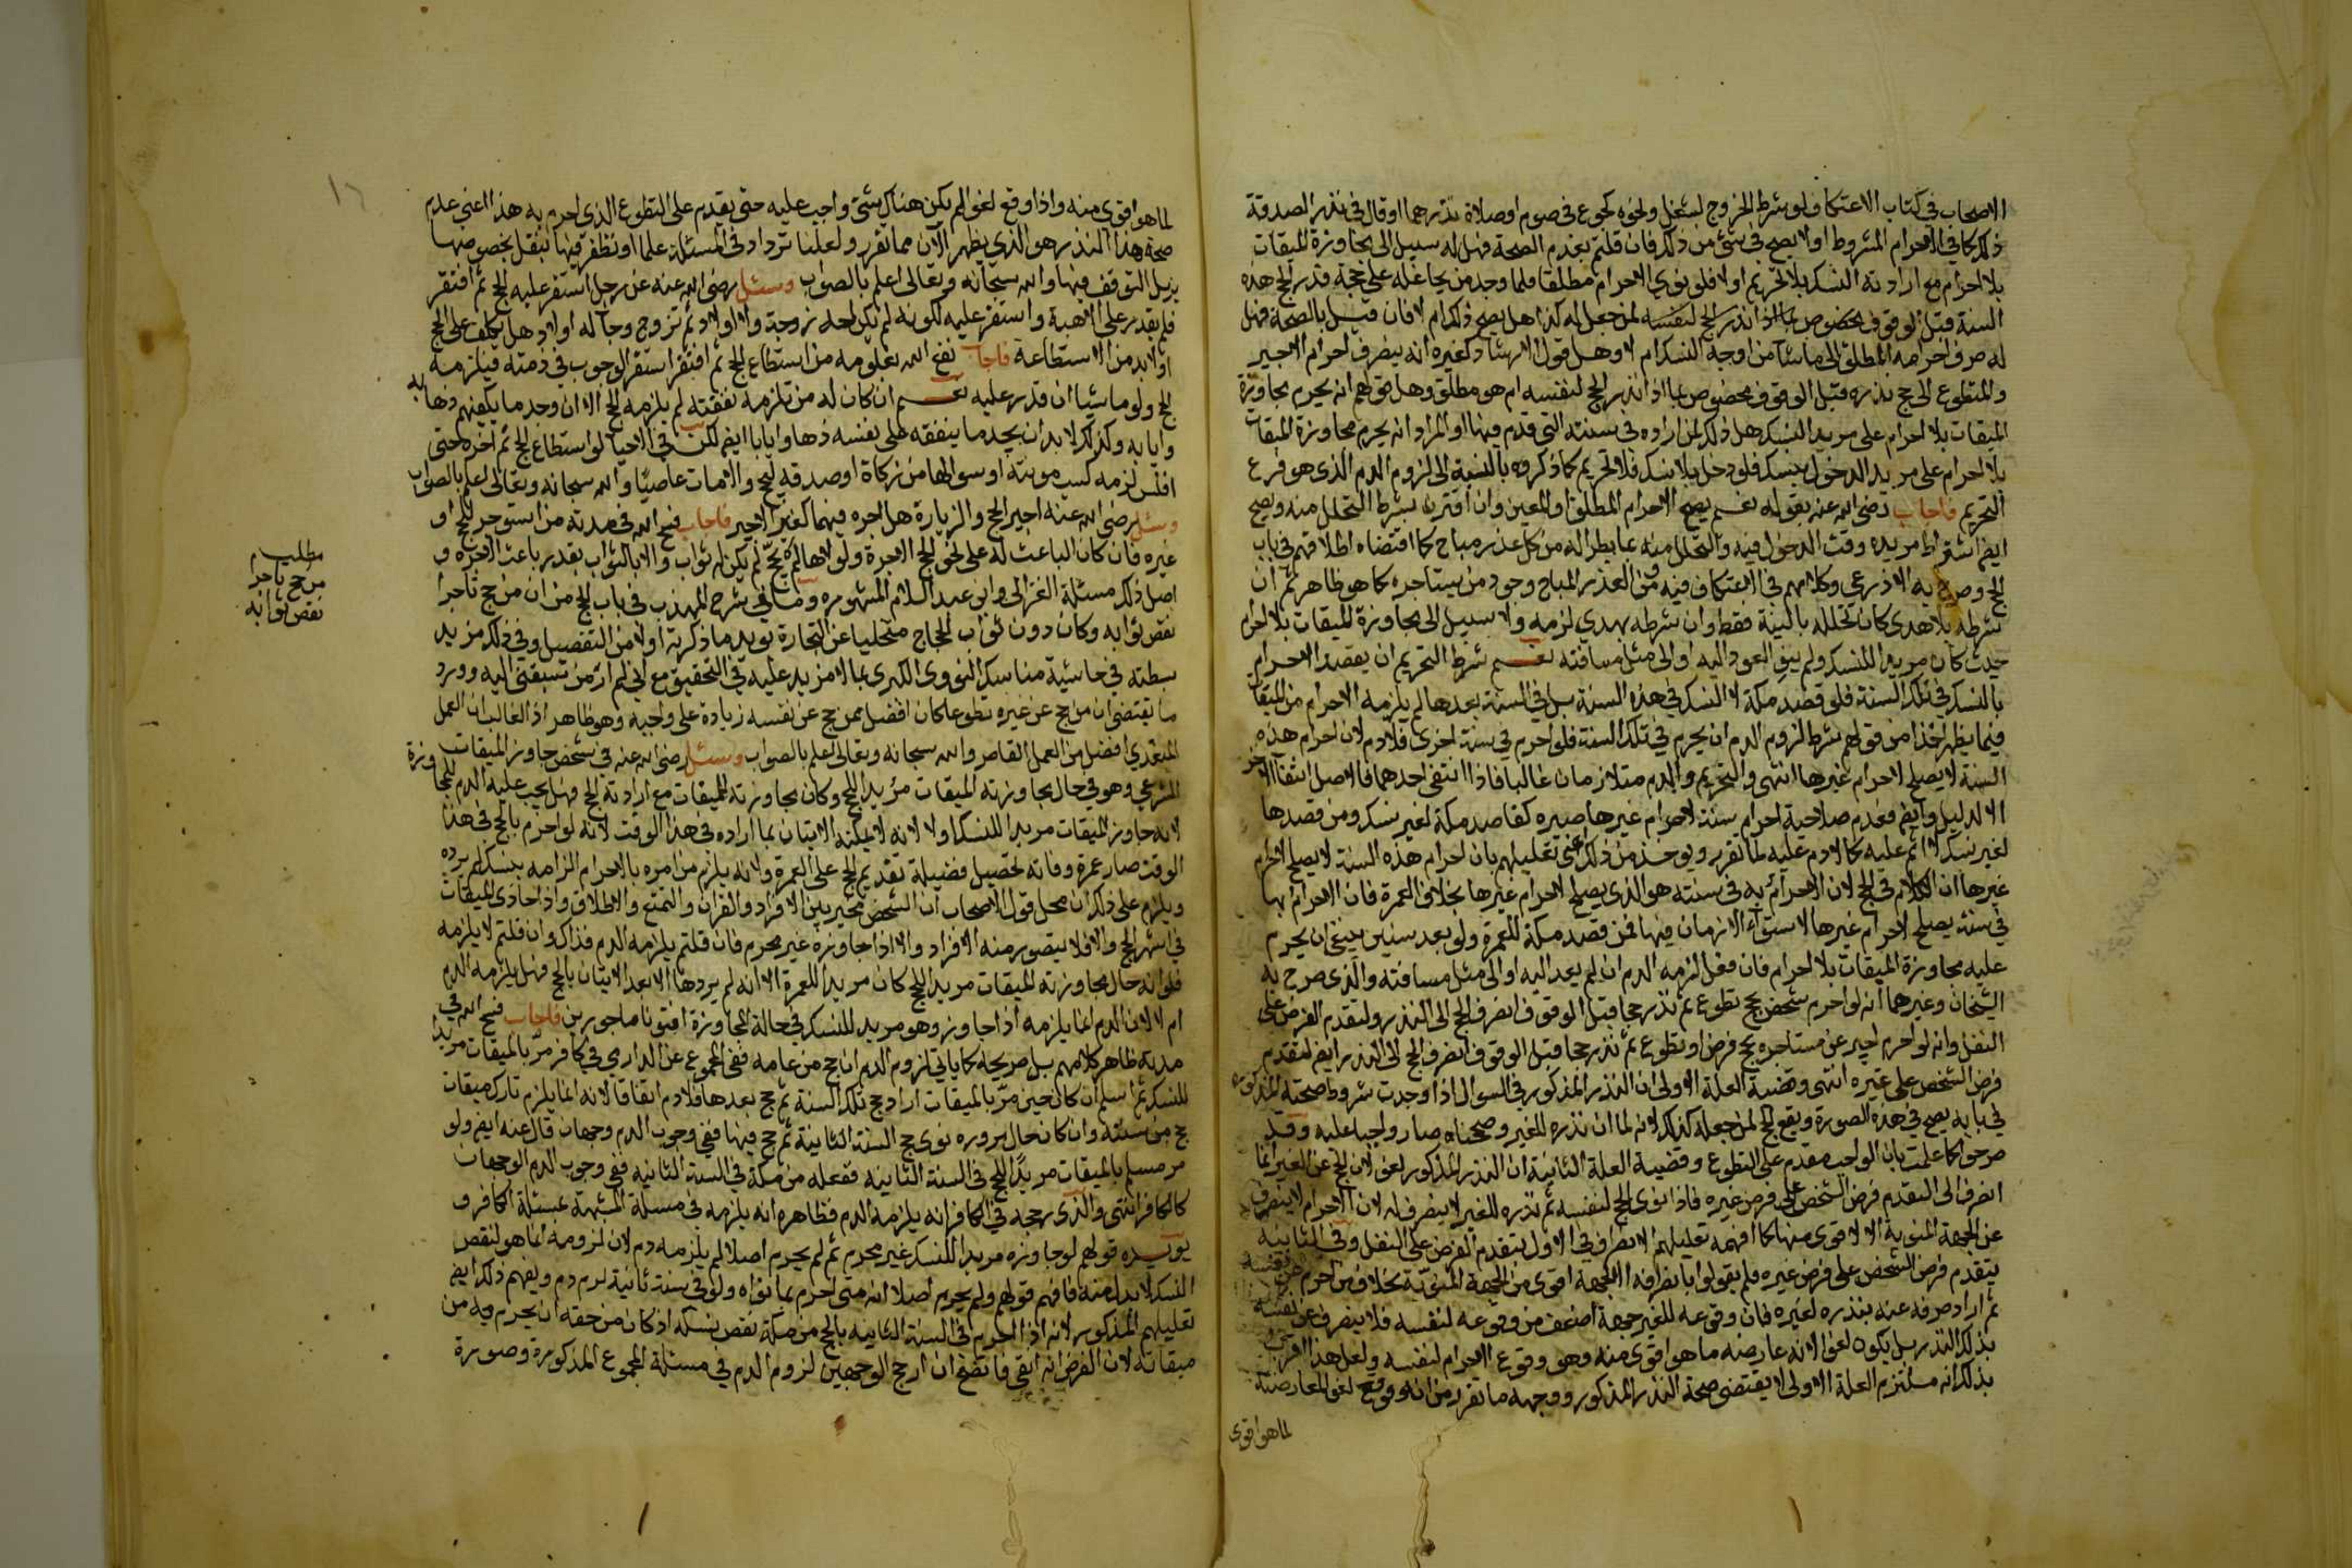 الاصحاب في كتاب الاعتكاف لو شرط الخروج لشغل ولخوه كجوع في صوم او صلاة نذرهما او قال في نذر الصدقة
ذلك كما في الاحرام المشروط او لا يصح في شئ من ذلك فان قلتم بعدم الصحة فهل له سبيل الى مجاوزة الميقات
بلا احرام مع ارادته النسك بلا تحريم او لا فلو نوى الاحرام مطلقا فلما وجد من يجاعله على حجة قدر الحج هذه
السنة قبل الوقوف بخصوص ما اذا نذر الحج لنفسه لمن جعل له كذا هل يصح ذلك ام لا فان قيل بالصحة فهل
له صرف احرامه المطلق الى ما شا من اوجه النسك ام لا وهل قول الارشاد كغيره انه ينصرف احرام الاجير
والمتطوع الى حج نذره قبل الوقوف مخصوص بما اذا نذر الحج لنفسه ام هو مطلق وهل قولهم انه يحرم مجاوزة
الميقات بلا احرام على مريد النسك هل ذلك لمن اراده في سنته التي قدم فيها او المراد انه يحرم مجاوزة الميقات
بلا احرام على مريد الدخول بنسك فلو دخل بلا نسك فلا تحريم كما ذكروه بالنسبة الى لزوم الدم الذي هو فرع
التحريم فاجاب رضي الله عنه بقوله نعم يصح الاحرام المطلق والمعين وان اقترن بشرط التحلل منه ويصح
ايضا اشتراط مريده وقت الدخول فيه والتحلل منه بما يطرا له من كل عذر مباح كما اقتضاه اطلاقهم في باب
الحج وصرح به الاذرعي وكلامهم في الاعتكاف فيه ومن العذر المباح وجود من يستاجره كما هو ظاهر ثم ان
شرطه بلا هدى كان تحلله بالنية فقط وان شرطه بهدي لزمه ولا سبيل الى مجاوزة الميقات بلا احرام
حيث كان مريدا للنسك ولم ينو العود اليه او الى مثل مسافته نعم شرط التحريم ان يقصد الاحرام
بالنسك في تلك السنة فلو قصد مكة لا للنسك في هذه السنة بل في السنة بعدها لم يلزمه الاحرام من الميقات
فيما يظهر اخذا من قولهم شرط لزوم الدم ان يحرم في تلك السنة فلو احرم في سنة اخرى فلا دم لان احرام هذه
السنة لا يصلح لاحرام غيرها انتهى والتحريم والدم متلازمان غالبا فاذا انتفى احدهما فالاصل انتفا الاخر
الا لدليل وايضا فعدم صلاحية احرام سنة لاحرام غيرها صيره كقاصد مكة لغير نسك ومن قصدها
لغير نسك لا اثم عليه كما لا دم عليه لما تقرر ويوخذ من ذلك اعني تعليلهم بان احرام هذه السنة لا يصلح لاحرام
غيرها ان الكلام في الحج لان الاحرام به في سنته هو الذي يصلح لاحرام غيرها بخلاف العمرة فان الاحرام بها
في سنة يصلح لاحرام غيرها لاستواء الازمان فيها فمن قصد مكة للعمرة ولو بعد سنين ينبغي ان يحرم
عليه مجاوزة الميقات بلا احرام فان فعل لزمه الدم ان لم يعد اليه او الى مثل مسافته والذي صرح به
الشيخان وغيرهما انه لو احرم شخص بحج تطوع ثم نذر حجا قبل الوقوف انصرف الحج الى النذر ولتقدم الفرض على
النفل وانه لو احرم اجير عن مستاجره بحج فرض او تطوع ثم نذر حجا قبل الوقوف انصرف الحج الى النذر ايضا لتقدم
فرض الشخص على غيره انتهى وقضية العلة الاولى ان النذر المذكور في السوال اذا وجدت شروط صحته المذكوره
في بابه يصح في هذه الصورة ويقع الحج لمن جعله كذلك لانه لما ان نذره للغير وصححناه صار واجبا عليه وقد
صرحوا كما علمت بان الواجب مقدم على التطوع وقضية العلة الثانية ان النذر المذكور لغو لان الحج عن الغير انما
انصرف الى التقدم فرض الشخص على فرض غيره فاذا نوى الحج لنفسه ثم نذره للغير لا ينصرف له لان الاحرام لا ينصرف
عن الجهة المنوية الا لاقوى منها كما افهمه تعليلهم الانصراف في الاول بتقدم الفرض على النفل وفي الثانية
بتقدم فرض الشخص على فرض غيره فلم يقولوا بانصرافه الا لجهة اقوى من الجهة المنوية بخلاف من احرم عن نفسه
ثم اراد صرفه عنه بنذره لغيره فان وقوعه للغير جهة اضعف من وقوعه لنفسه فلا ينصرف عن نفسه
بذلك النذر بل يكون لغوا لانه عارضه ما هو اقوى منه وهو وقوع الاحرام لنفسه ولعل هذا اقرب
بذلك انه مستلزم العلة الاولى لا يقتضي صحة النذر المذكور ووجهه ما تقرر من انه وقع لغو المعارضته
لما هو اقوى
١٦
لما هو اقوى منه واذا وقع لغوا لم يكن هناك شئ واجب عليه حتى يقدم على التطوع الذي احرم به هذا اعني عدم
صحة هذا النذر هو الذي يظهر الآن مما تقرر ولعلنا نزداد في المسئلة علما او نظفر فيها بنقل بخصوصها
يزيل التوقف فيها والله سبحانه وتعالى اعلم بالصواب وسئل رضي الله عنه عن رجل استقر عليه الحج ثم افتقر
فلم يقدر على الاهبة واستقر عليه لكونه لم يكن له زوجة ولا اولاد ثم تزوج وجا له اولاد هل يكلف على الحج
او لا بد من الاستطاعة فاجاب نفع الله بعلومه من استطاع الحج ثم افتقر استقر الوجوب في ذمته فيلزمه
الحج ولو ماشيا ان قدر عليه نعم ان كان له من تلزمه نفقته لم يلزمه الحج الا ان وجد ما يكفيهم ذهابه
وايابه وكذلك لا بد ان يجد ما ينفقه على نفسه ذهابا وايابا ايضا لكن في الاحيا لو استطاع الحج ثم اخره حتى
افلس لزمه كسب مونته او سوالها من زكاة او صدقة ليحج والا مات عاصيا والله سبحانه وتعالى اعلم بالصواب
وسئل رضي الله عنه اجير الحج والزيارة هل اجره فيهما كغير الاجير فاجاب فسح الله في مدته من استوجر للحج او
غيره فان كان الباعث له على نحو الحج الاجرة ولولاها لم يحج لم يكن له ثواب والا بالثواب بقدر باعث الاخرة و
اصل ذلك مسئلة الغزالي وابن عبد السلام المشهوره وما في شرح المهذب في باب الحج من ان من حج تاجرا
نقص ثوابه وكان دون ثواب الحجاج متخليا عن التجارة يويد ما ذكرته اولا من التفصيل وفي ذلك مزيد
بسطته في حاشية مناسك النووي الكبرى بما لا مزيد عليه في التحقيق مع اني لم ار من سبقني اليه وورد
ما يقتضي ان من حج عن غيره تطوعا كان افضل ممن حج عن نفسه زيادة على واجبه وهو ظاهر اذ الغالب ان العمل
المتعدي افضل من العمل القاصر والله سبحانه وتعالى اعلم بالصواب وسئل رضي الله عنه في شخص جاوز الميقات
الشرعي وهو في حال مجاوزته الميقات مريدا للحج وكان مجاوزته للميقات مع ارادته الحج فهل يجب عليه الدم للمجاوزة
لانه جاوز الميقات مريدا للنسك او لا لانه لا يمكنه الاتيان بما اراده في هذا الوقت لانه لو احرم بالحج في هذا
الوقت صار عمرة وفاته تحصيل فضيلة تقديم الحج على العمرة ولانه يلزم من امره بالاحرام الزامه بنسك لم يرده
ويلزم على ذلك ان محل قول الاصحاب ان الشخص مخير بين الافراد والقران والتمتع والاطلاق واذا حاذى الميقات
في اشهر الحج والا فلا يتصور منه الافراد والا اذا جاوزه غير محرم فان قلتم يلزمه الدم فذاك وان قلتم لا يلزمه
فلو انه حال مجاوزته الميقات مريدا للحج كان مريدا للعمرة الا انه لم يردها الا بعد الاتيان بالحج فهل يلزمه الدم
ام لا لان الدم انما يلزمه اذا جاوز وهو مريد للنسك في حالة المجاوزة افتونا ماجورين فاجاب فسح الله في
مدته ظاهر كلامهم بل صريحه كما ياتي لزوم الدم ان حج من عامه ففي المجموع عن الدارمي في كافر مر بالميقات مريدا
للنسك ثم اسلم ان كان حين مر بالميقات اراد حج تلك السنة ثم حج بعدها فلا دم اتفاقا لانه انما يلزم تارك ميقات
حج من سنته وان كان حال مروره نوى حج السنة الثانية ثم حج فيها ففي وجوب الدم وجهان قال عنه ايضا ولو
مر مسلم بالميقات مريدا للحج في السنة الثانيه ففعله من مكة في السنة الثانيه ففي وجوب الدم الوجهان
كالكافر انتهى والذي رجحه في الكافر انه يلزمه الدم فظاهره انه يلزمه في مسئلة المشبهة بمسئلة الكافر و
يويده قولهم لو جاوزه مريدا للنسك غير محرم ثم لم يحرم اصلا لم يلزمه دم لان لزومه انما هو لنقص
النسك لا بدل منه فافهم قولهم ولم يحرم اصلا انه متى احرم بما نواه ولو في سنة ثانية لزم دم ويفهم ذلك ايضا
تعليلهم المذكور لانه اذا احرم في السنة الثانيه بالحج من مكة نقص نسكه اذ كان من حقه ان يحرم به من
ميقاته لان الفرض انه اتقي فاتضح ان ارجح الوجهين لزوم الدم في مسئلة المجموع المذكورة وصورة
مطلب
من حج تاجرا
نقص ثوابه